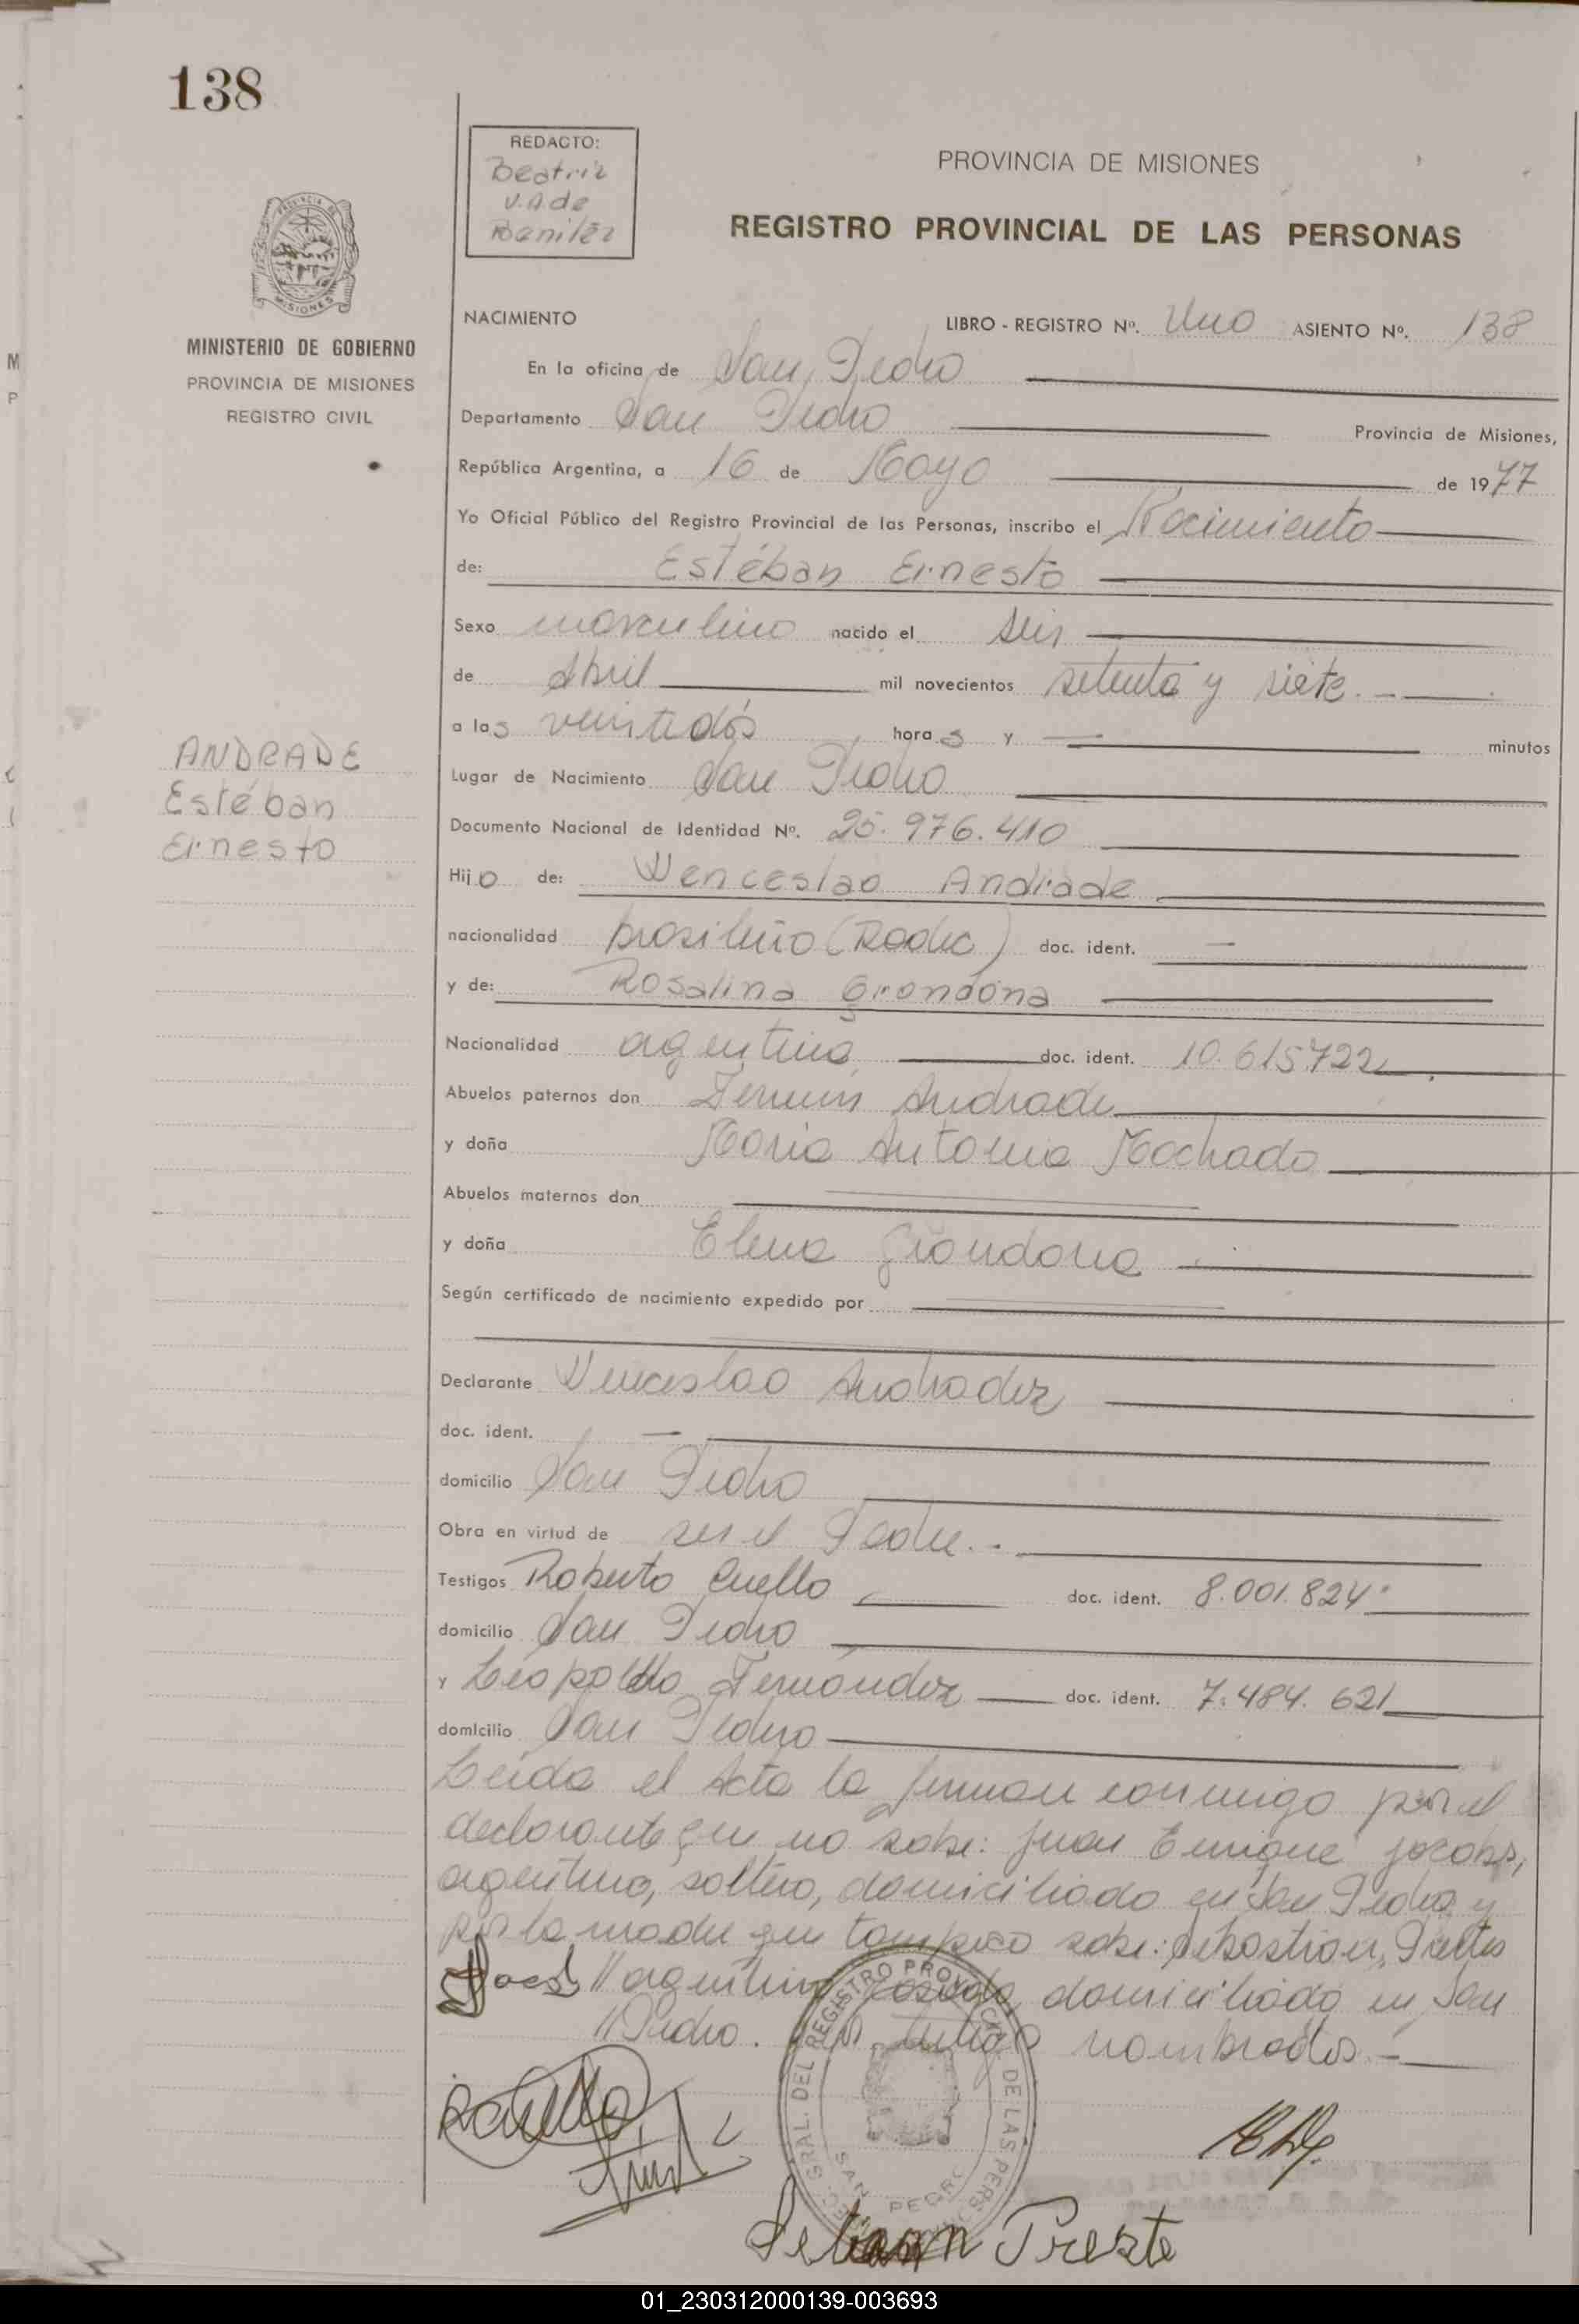 138
REDACTO:
Beatriz
V. A de
Benitez
PROVINCIA DE MISIONES
REGISTRO PROVINCIAL DE LAS PERSONAS
PROVINCIA DE
MISIONES
MINISTERIO DE GOBIERNO
PROVINCIA DE MISIONES
REGISTRO CIVIL
NACIMIENTO
LIBRO - REGISTRO Nº. Uno ASIENTO Nº. 138
En la oficina de San Pedro
Departamento San Pedro Provincia de Misiones,
República Argentina, a 16 de Mayo de 1977
Yo Oficial Público del Registro Provincial de las Personas, inscribo el Nacimiento
de: Estéban Ernesto
Sexo masculino nacido el seis
de Abril mil novecientos setenta y siete.
a las veintidós horas y — minutos
ANDRADE
Estéban
Ernesto
Lugar de Nacimiento San Pedro
Documento Nacional de Identidad Nº. 25.976.410
Hijo de: Wenceslao Andrade
nacionalidad brasileño (Radic) doc. ident. —
y de: Rosalina Grondona
Nacionalidad argentina doc. ident. 10.615.722
Abuelos paternos don Fermin Andrade
y doña Maria Antonia Machado
Abuelos maternos don
y doña Elena Grondona
Según certificado de nacimiento expedido por
Declarante Wenceslao Andradez
doc. ident. —
domicilio San Pedro
Obra en virtud de ser el Padre.-
Testigos Roberto Cuello doc. ident. 8.001.824
domicilio San Pedro
y Leopoldo Fernández doc. ident. 7.484.621
domicilio San Pedro
Leida el Acta la firman conmigo por el
declarante que no sabe: Juan Enrique
argentino, soltero, domiciliado en San Pedro y
por la madre que tampoco sabe: Sebastian Prestes
// argentino casado, domiciliado en San
//Pedro. los testigos nombrados.-
REGISTRO PROVINCIAL DE LAS PERSONAS
SAN PEDRO
Prezte
01_230312000139-003693